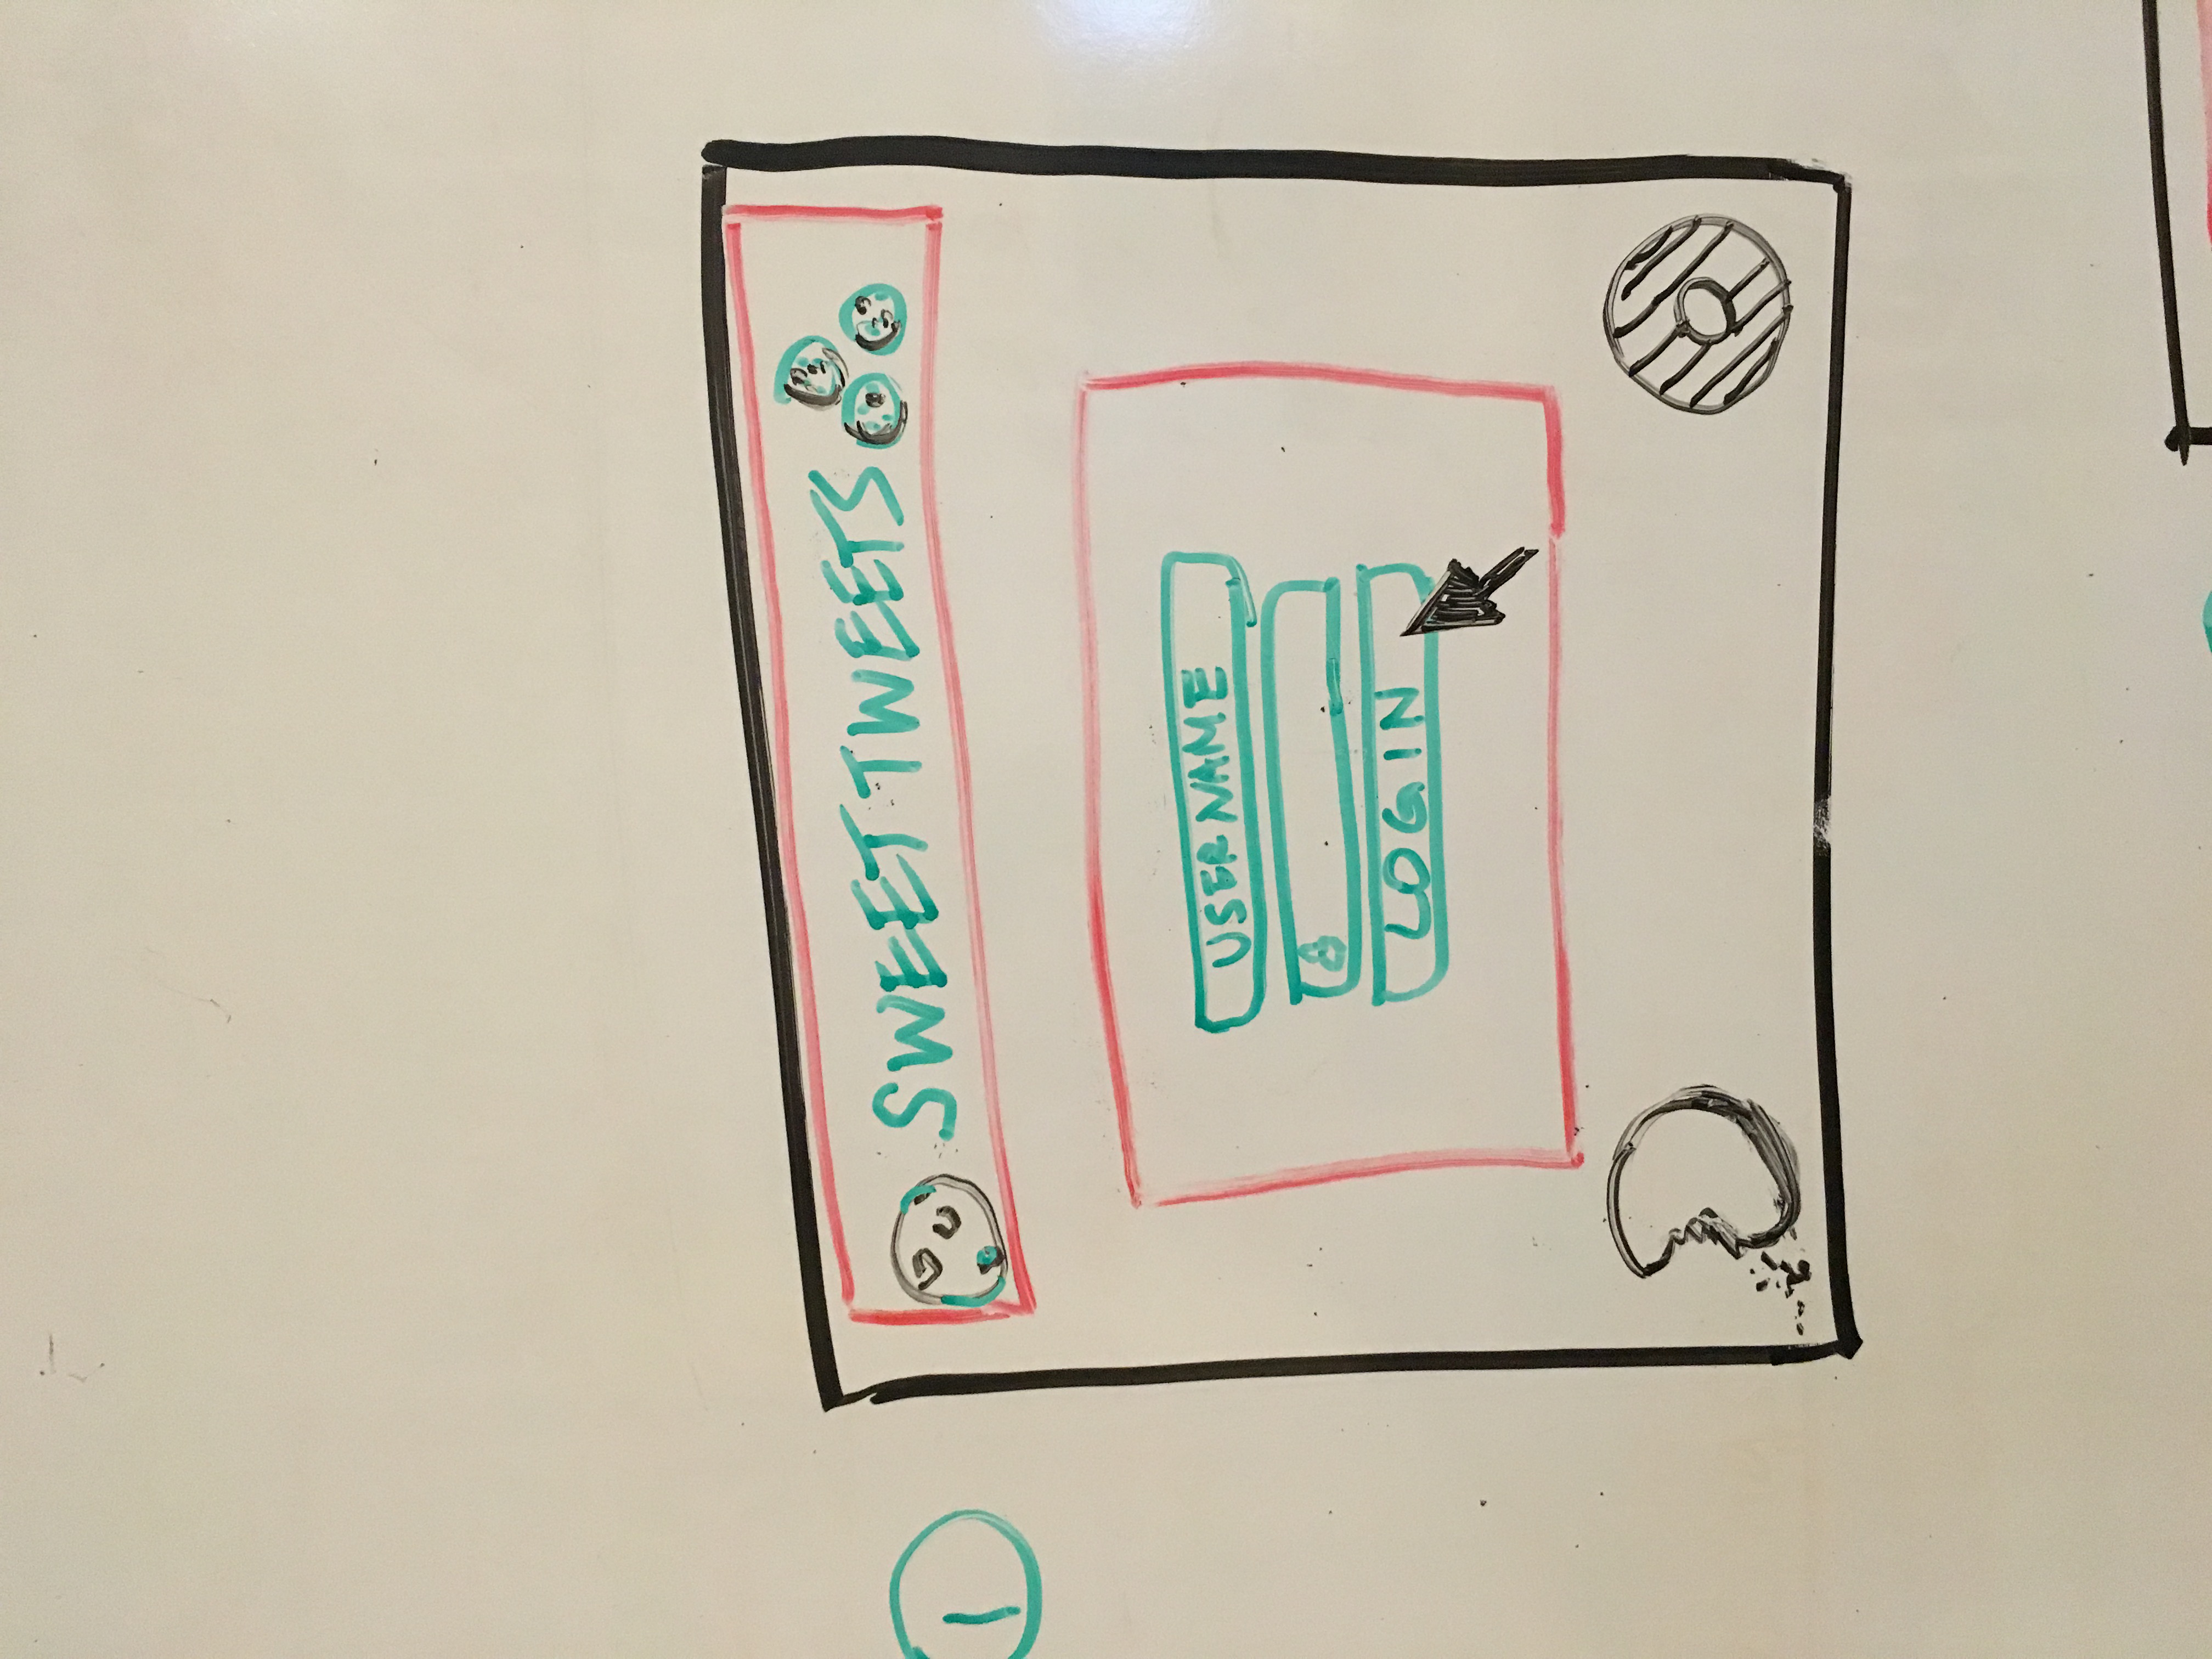 SWEET TWEETS
1
USERNAME
LOGIN